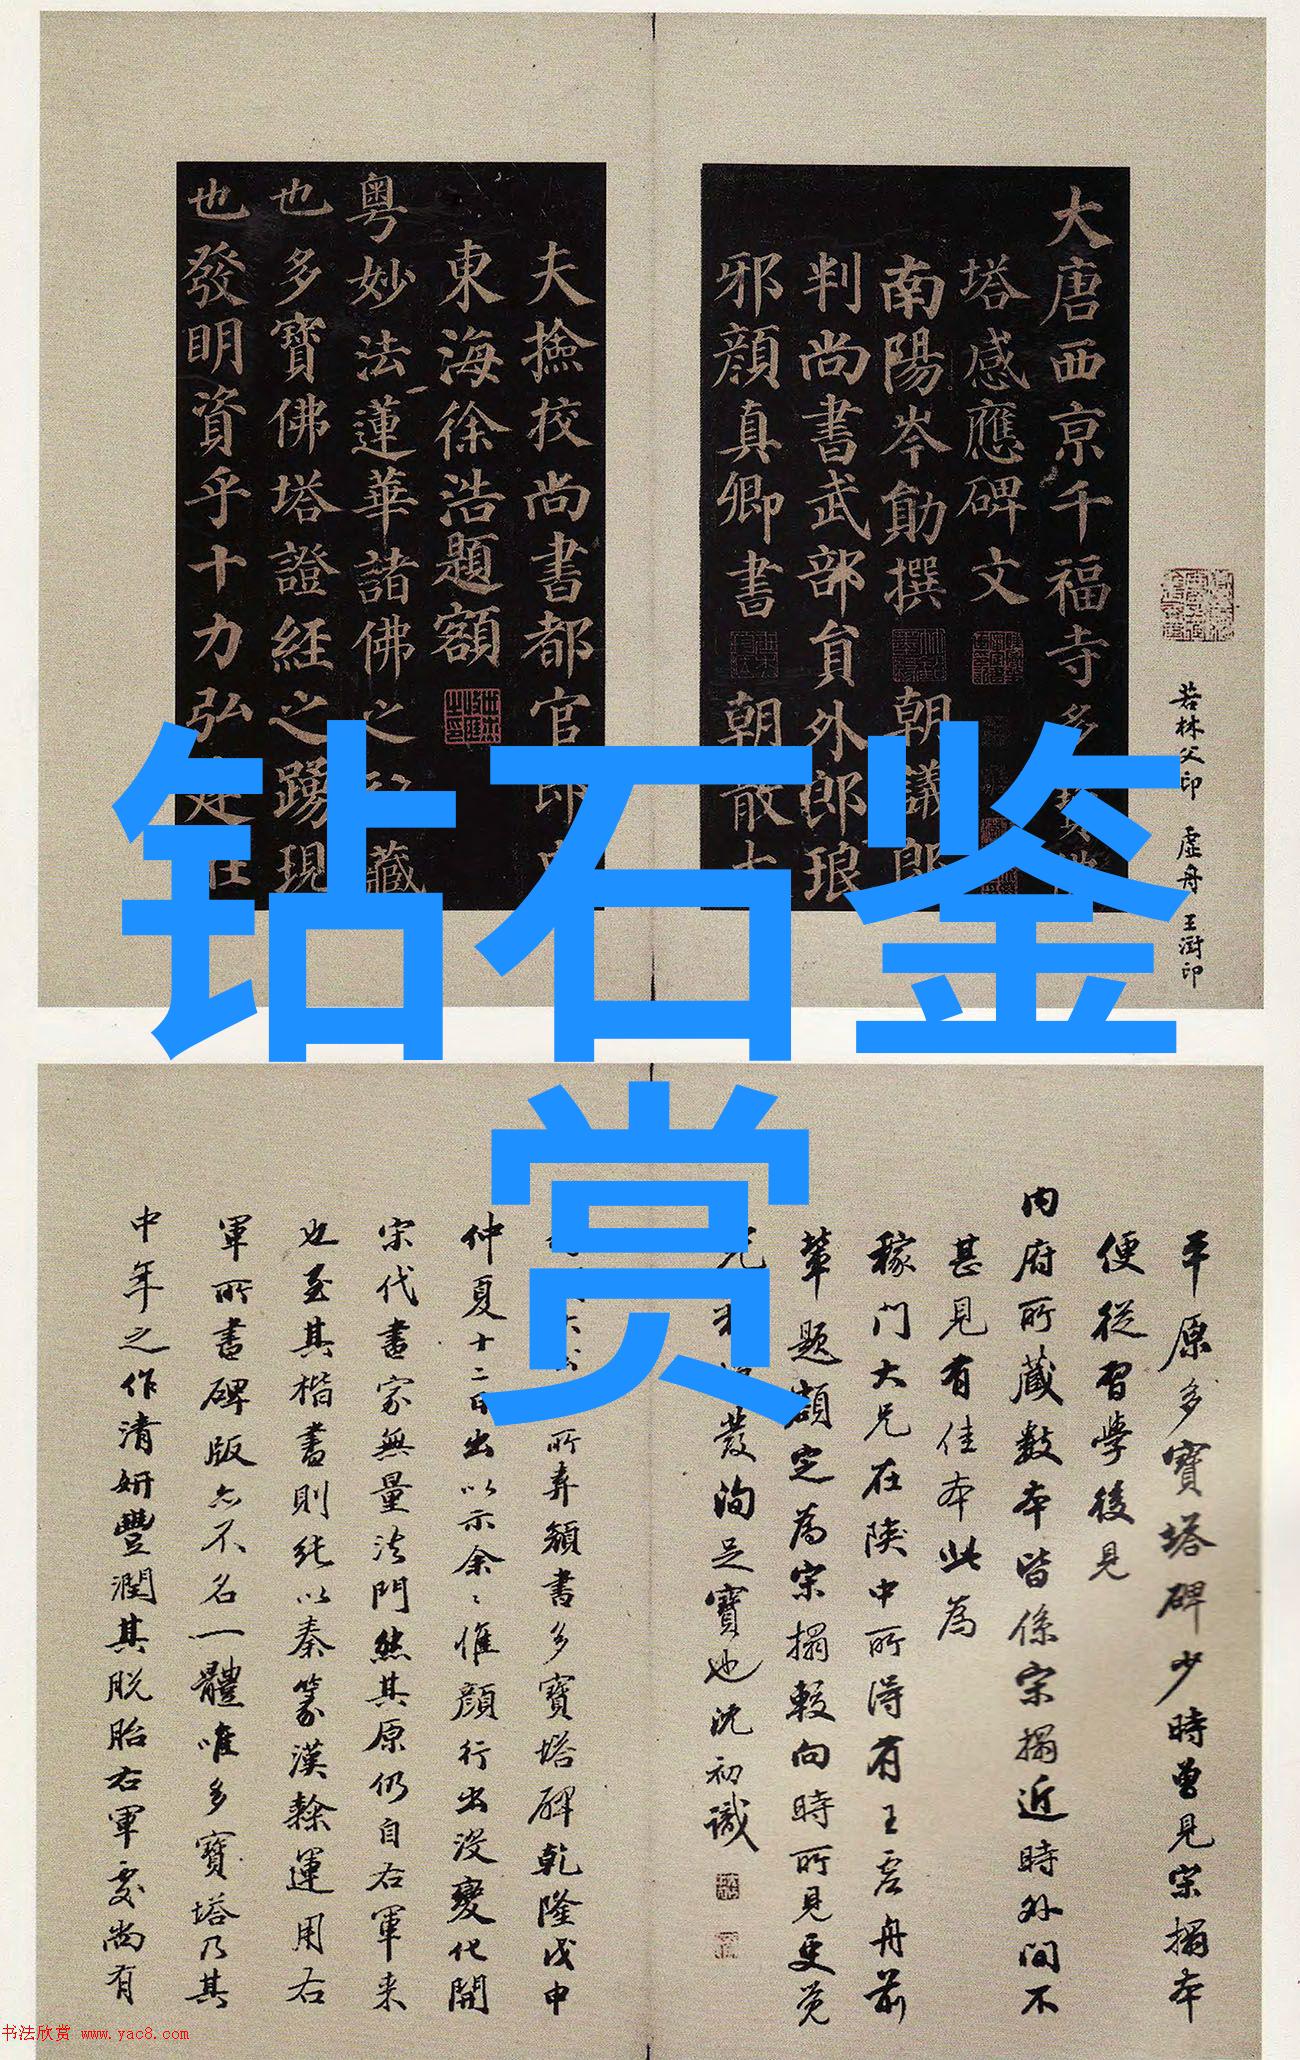 大唐西京千福寺多寶塔
塔感應碑文
南陽岑勛撰 朝議郎
判尚書武部員外郎琅
邪顏真卿書 朝散大
夫撿挍尚書都官郎中
東海徐浩題額
粵妙法蓮華諸佛之秘藏
也多寶佛塔證經之踴現
也發明資乎十力弘建在
若林父印 虛舟 王澍印
钻石鉴
赏
平原多寶塔碑少時曾見宋搨本
便從習學後見
內府所藏數本皆係宋搨近時外間不
甚見有佳本此為
稼門大兄在陝中所得有王虛舟前
輩題額定為宋搨較向時所見更覺
發洵足寶也沈初識
所弆顏書多寶塔碑乾隆戊申
仲夏十二日出以示余惟顏行出沒變化開
宋代書家無量法門然其原仍自右軍来
也至其楷書則純以秦篆漢隸運用右
軍所書碑版亦不名一體唯多寶塔乃其
中年之作清妍豐潤其脫胎右軍處尚有
书法欣赏 www.yac8.com